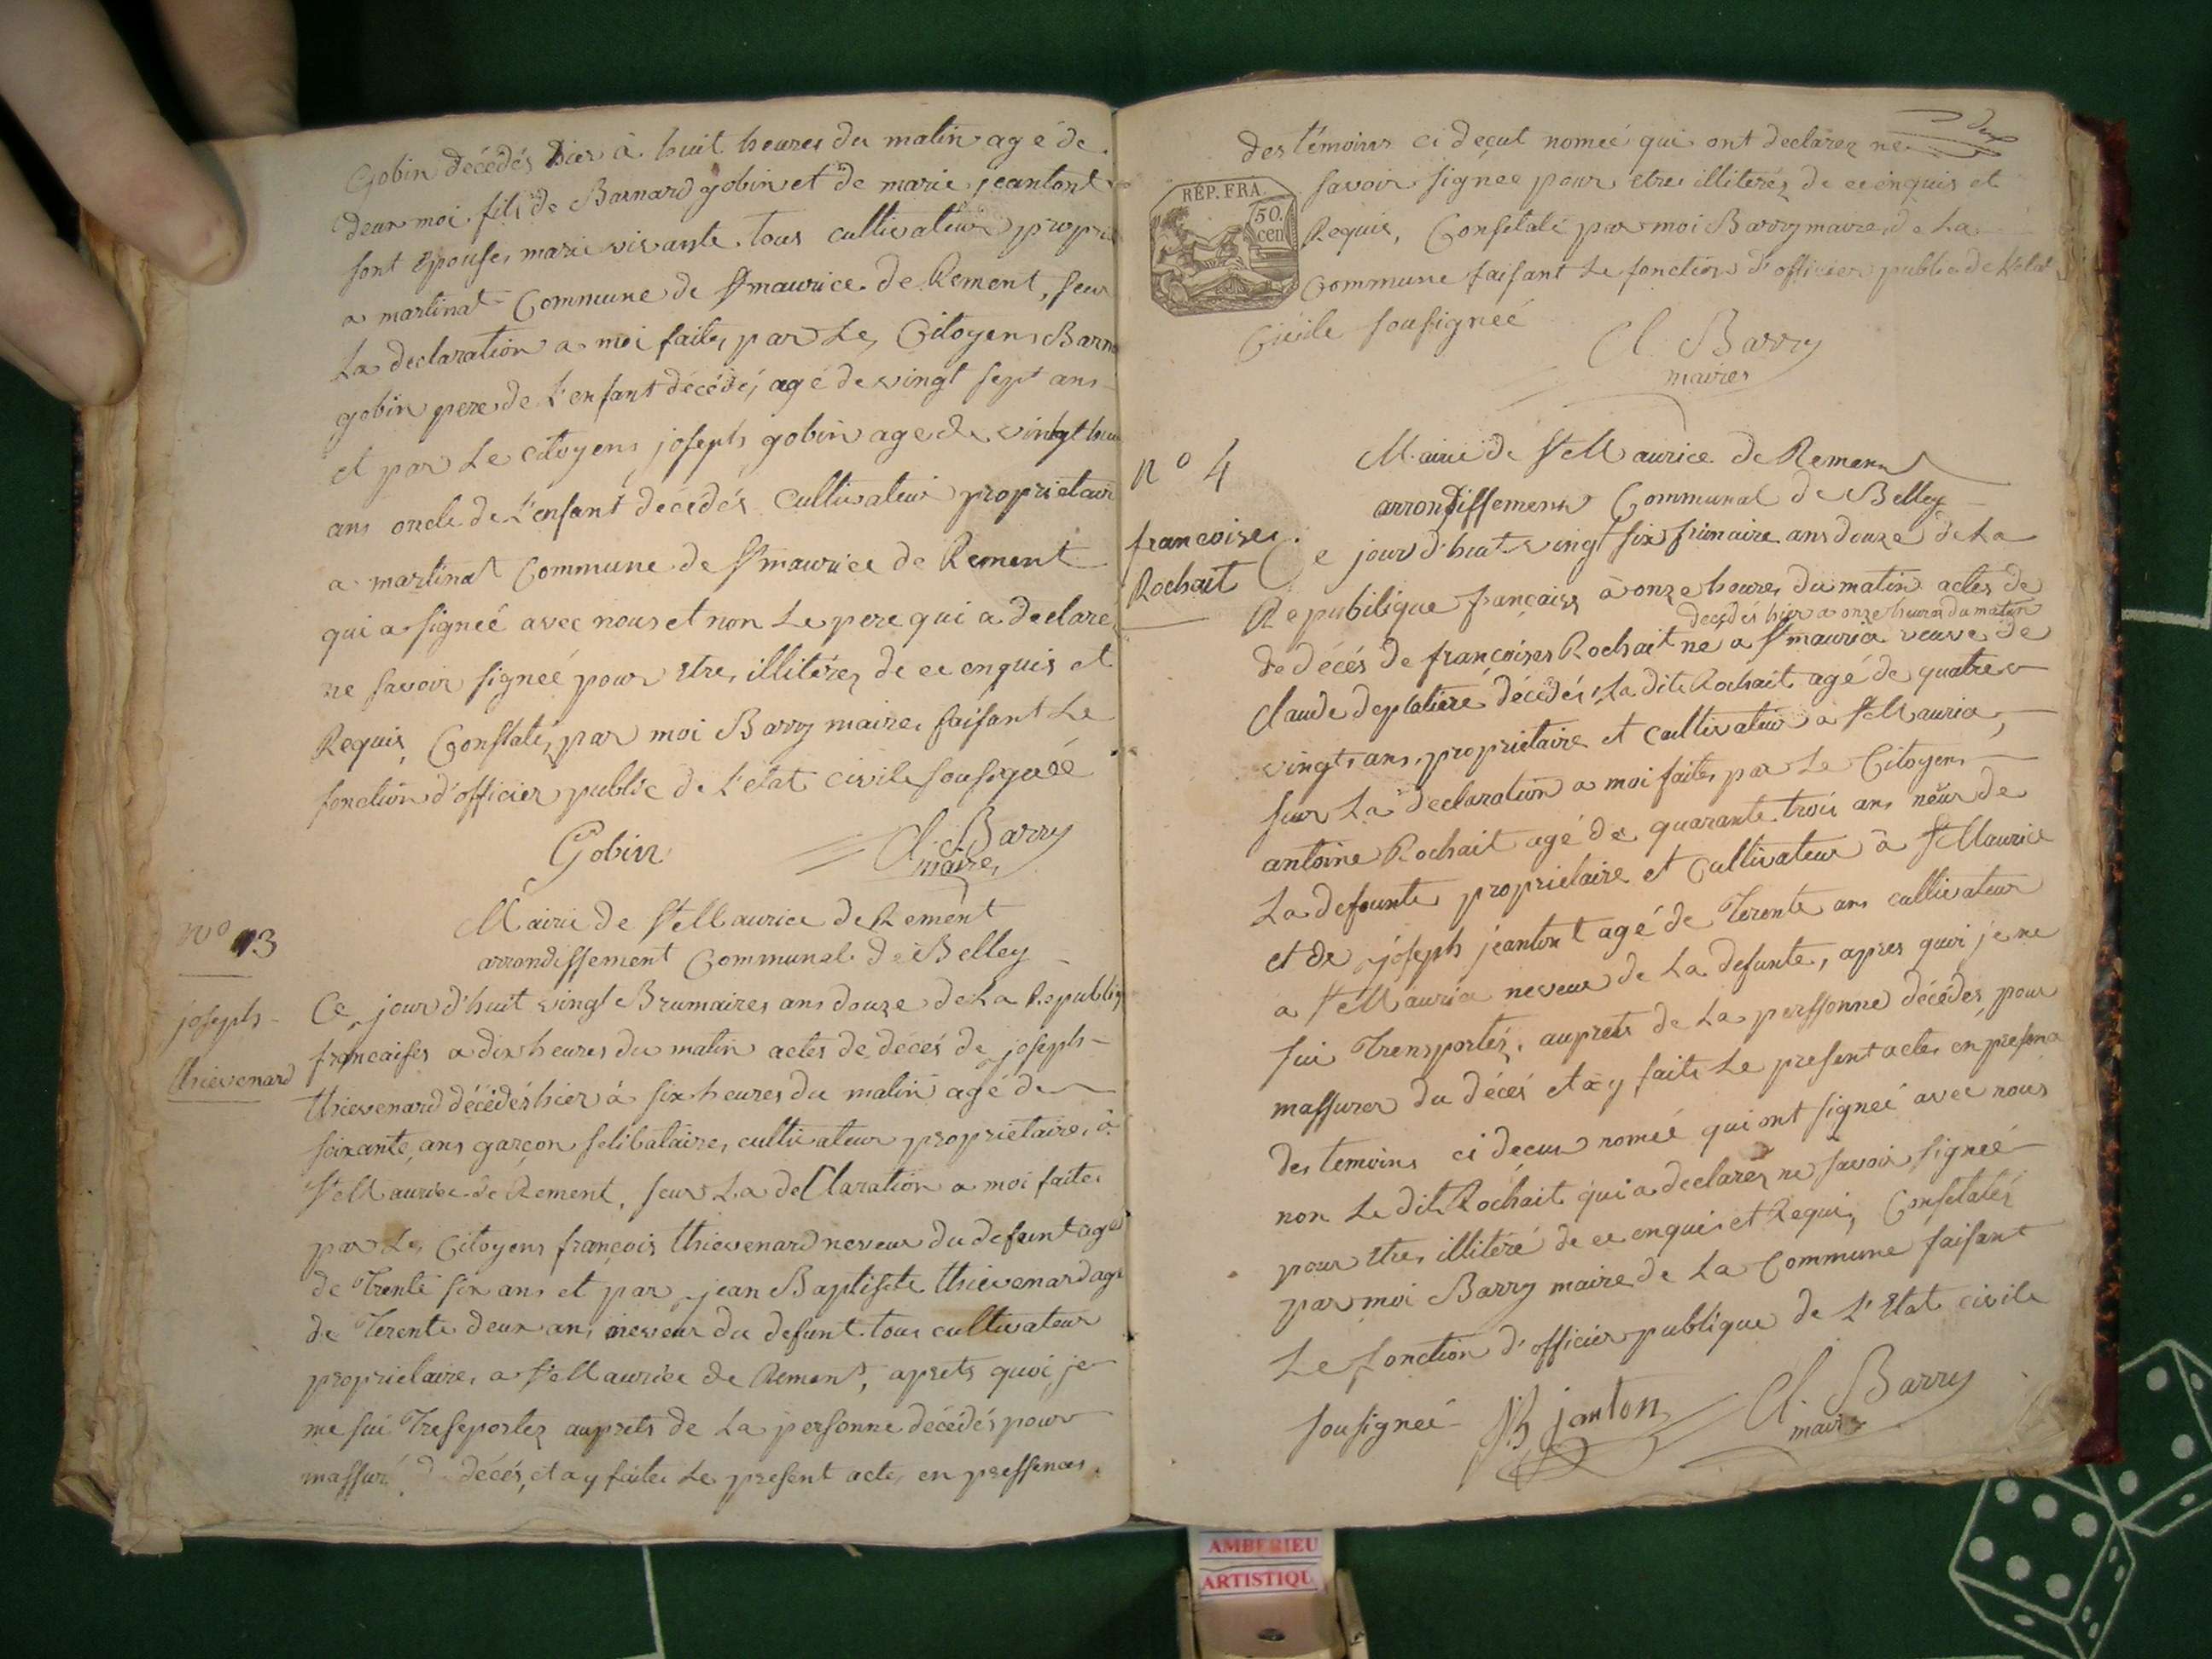 Gobin décédés hier à huit heures du matin agé de
deux moi fils de Barnard gobin et de marie jeantont
sont Epouse, marie vivante tous cultivateur propri
a martinat Commune de St maurice de Rement, seur
La declaration a moi faite, par Le Citoyens Barn
gobin pere de L'enfant décédé, agé de vingt sept ans
et par Le citoyens joseph gobin age de vingt hui
ans oncle de L'enfant décédés cultivateur proprietair
a martinat Commune de St maurice de Rement
qui a signeé avec nous et non Le pere qui a declare
ne savoir signeé pour etre illitérez de ce enquis et
Requis, Constaté, par moi Barry maire, faisant Le
fonction d'officier public de L'etat civile sousigneé
Gobin Cl. Barry
maire
Mairie de St Maurice de Rement
arrondissement Communal de Belley
no 13
joseph
thievenard
Ce jour d'huit vingt Brumaires ans douze de La Republiq
francaises a dix heures du matin actes de décés de joseph
thievenard décédés hier à six heures du matin agé de
soixante ans garçon selibataire, cultivateur proprietaire, à
St Maurice de Rement, seur La declaration a moi faite
par Le Citoyens françois thievenard neveur du defunt agé
de Trente six ans et par jean Baptiste thievenard agé
de Terente deux ans neveur du defunt tous cultivateur
proprietaire, a St Maurice de Rement, aprets quoi je
me sui Tresportez auprets de La personne décédés pour
massuré d décés, et a y faite Le present acte, en pressences
des témoins ci deçut nomeé qui ont declarez ne
savoir signeé pour etre illiterés de ce enquis et
Requis, Constaté par moi Barry maire de La
Commune faisant Le fonction d'officier public de L'etat
Civile sousigneé
RÉP. FRA.
50.
cen
Cl Barry
maires
no 4
francoise
Rochait
Mairie de St Maurice de Rement
arrondissement Communal de Belley
Ce jour d'huit vingt six frimaire ans douze de La
Republique française à onze heures du matin actes de
decédés hier a onze heures du matin
de décés de françoises Rochait né a St mauria veuve de
Claude deplatiere décédés, La dite Rochait agé de quatre
vingt, ans, proprietaire et cultivateur a St Mauria,
seur La declaration a moi faite, par Le Citoyens
antoine Rochait agé de quarante trois ans neveur de
La defeunte, proprietaire et Cultivateur à St Maurice
et de joseph jeantont agé de Terente ans cultivateur
a St Mauria neveur de La defunte, apres quoi je me
sui Trensportéz, auprets de La perssonne décédes, pour
massurer du décés et a y faite Le present acte, en presena
des temoins ci decus nomeé qui ont signeé avec nous
non Le dit Rochait qui a declarez ne savoir signeé
pour etre, illitéré de ce enquis et Requis, Constatés
par moi Barry maire de La Commune faisant
Le fonction d'officier publique de L'Etat civile
sousigneé Jh janton Cl. Barry
maire
AMBERIEU
ARTISTIQU